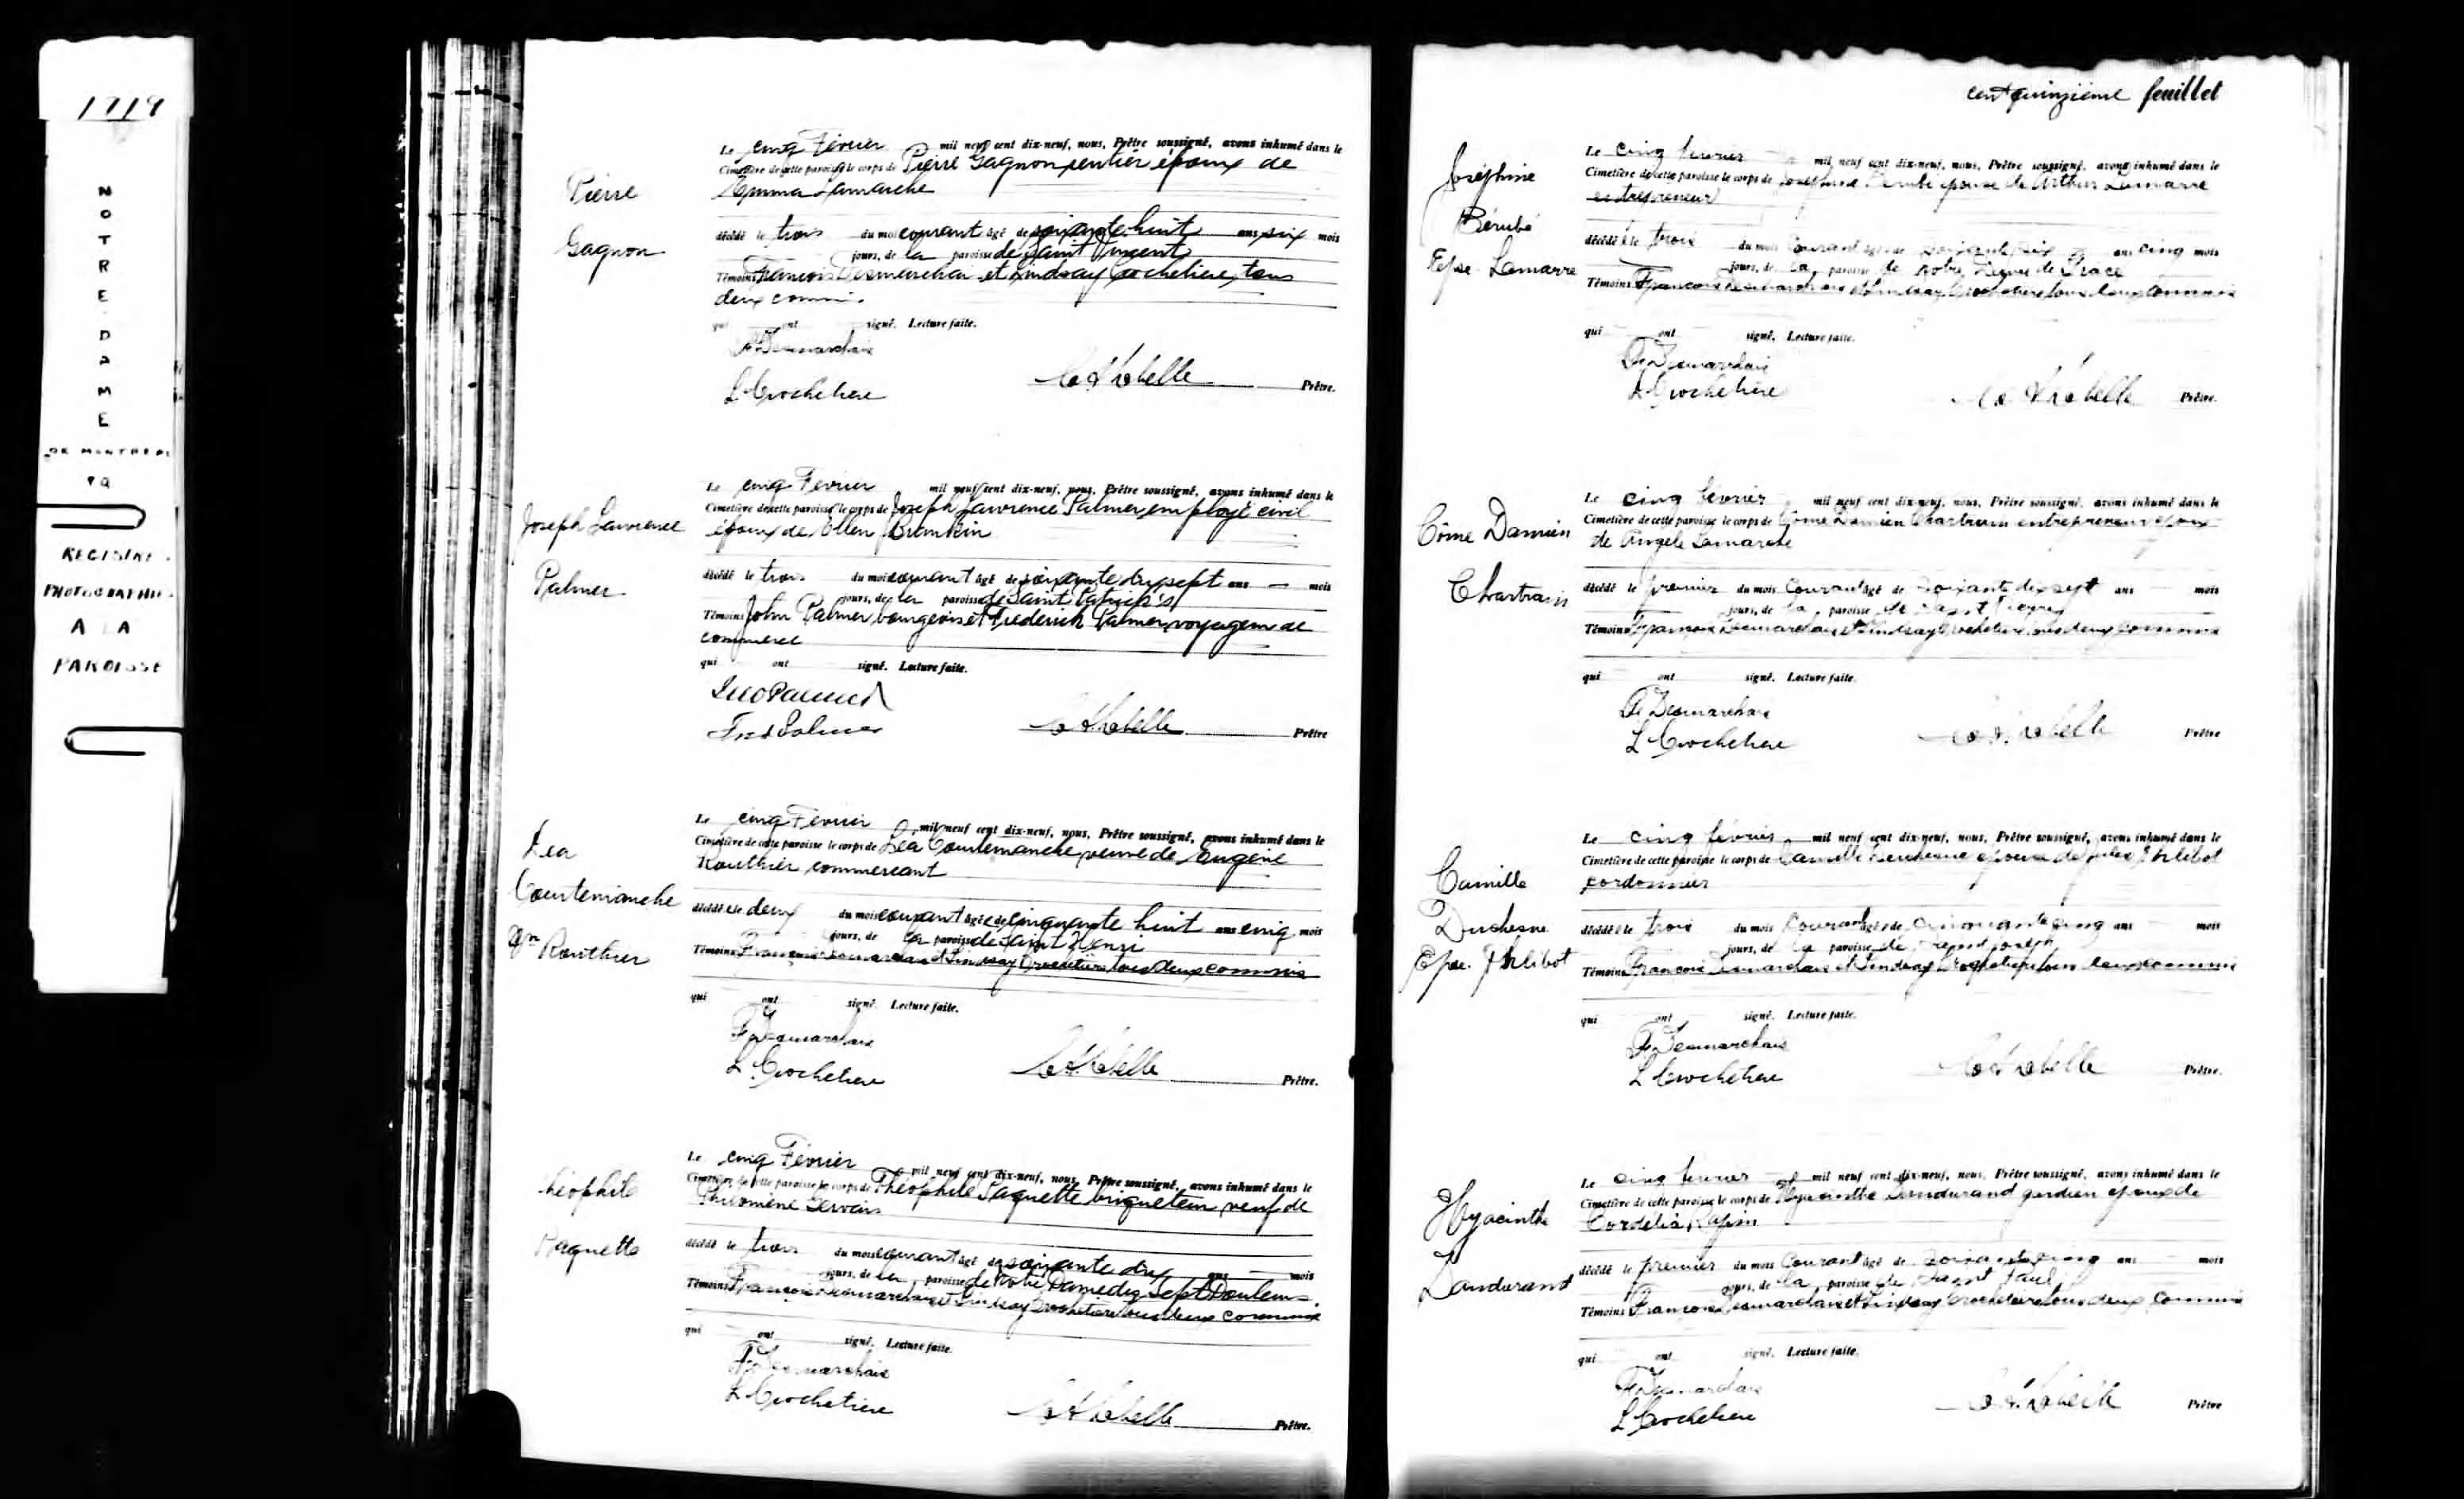 1919
NOTRE-DAME
DE MONTREAL
REGISTRE
PHOTOGRAPHIE
A LA
PAROISSE
Pierre
Gagnon
Le cinq Février mil neuf cent dix-neuf, nous, Prêtre soussigné, avons inhumé dans le
Cimetière de cette paroisse le corps de Pierre Gagnon rentier époux de
Emma Lamarche
décédé le trois du mois courant âgé de soixante huit ans six mois
jours, de la paroisse de Saint Vincent
Témoins François Desmarchais et Lindsay Crochetiere, tous
deux commis.
qui ont signé. Lecture faite.
F. Desmarchais
L Crochetiere
Prêtre.
Joseph Lawrence
Palmer
Le cinq Février mil neuf cent dix-neuf, nous, Prêtre soussigné, avons inhumé dans le
Cimetière de cette paroisse le corps de Joseph Lawrence Palmer, employé civil
époux de Ellen
décédé le trois du mois courant âgé de soixante dix sept ans — mois
jours, de la paroisse de Saint Patrick's
Témoins John Palmer, bourgeois et Frederick Palmer, voyageur de
commerce
qui ont signé. Lecture faite.
Fred Palmer
Prêtre
Lea
Courtemanche
Vve Routhier
Le cinq Février mil neuf cent dix-neuf, nous, Prêtre soussigné, avons inhumé dans le
Cimetière de cette paroisse le corps de Léa Courtemanche, veuve de Eugène
Routhier, commercant
décédée le deux du mois courant âgée de cinquante huit ans cinq mois
jours, de la paroisse de Saint Henri
Témoins François Desmarchais et Lindsay Crochetiere tous deux commis
qui ont signé. Lecture faite.
F. Desmarchais
L. Crochetiere
Prêtre.
Théophile
Paquette
Le cinq Février mil neuf cent dix-neuf, nous, Prêtre soussigné, avons inhumé dans le
Cimetière de cette paroisse le corps de Théophile Paquette briqueteur, veuf de
Philomène Gervais
décédé le trois du mois courant âgé de soixante dix ans — mois
jours, de la paroisse de Notre Dame des Sept Douleurs.
Témoins François Desmarchais et Lindsay Crochetiere tous deux commis
qui ont signé. Lecture faite.
F. Desmarchais
L Crochetiere
Prêtre.
cent quinzième feuillet
Joséphine
Bérubé
Epse. Lamarre
Le cinq février mil neuf cent dix-neuf, nous, Prêtre soussigné, avons inhumé dans le
Cimetière de cette paroisse le corps de Joséphine Bérubé épouse de Arthur Lamarre
entrepreneur
décédée le trois du mois Courant âgée de soixante six ans cinq mois
jours, de la paroisse de Notre Dame de Grace
Témoins François Desmarchais et Lindsay Crochetiere tous deux commis
qui ont signé. Lecture faite.
F. Desmarchais
L Crochetiere
Prêtre.
Côme Damien
Chartrain
Le cinq février mil neuf cent dix-neuf, nous, Prêtre soussigné, avons inhumé dans le
Cimetière de cette paroisse le corps de Côme Damien Chartrain entrepreneur époux
de Angele Lamarche
décédé le premier du mois Courant âgé de soixante dix sept ans — mois
jours, de la paroisse de Saint
Témoins François Desmarchais et Lindsay Crochetiere tous deux commis
qui ont signé. Lecture faite.
F. Desmarchais
L Crochetiere
Prêtre
Camille
Duchesne
Epse. Philibot
Le cinq février mil neuf cent dix-neuf, nous, Prêtre soussigné, avons inhumé dans le
Cimetière de cette paroisse le corps de Camille Duchesne épouse de Jules Philibot
cordonnier
décédée le trois du mois Courant âgée de cinquante cinq ans — mois
jours, de la paroisse de Saint Joseph
Témoins François Desmarchais et Lindsay Crochetiere tous deux commis
qui ont signé. Lecture faite.
F. Desmarchais
L Crochetiere
Prêtre.
Hyacinthe
Dandurand
Le cinq février mil neuf cent dix-neuf, nous, Prêtre soussigné, avons inhumé dans le
Cimetière de cette paroisse le corps de Hyacinthe Dandurand gardien époux de
Cordélia Rapin
décédé le premier du mois Courant âgé de soixante cinq ans — mois
jours, de la paroisse de Saint Paul
Témoins François Desmarchais et Lindsay Crochetiere tous deux Commis
qui ont signé. Lecture faite.
F. Desmarchais
L Crochetiere
Prêtre